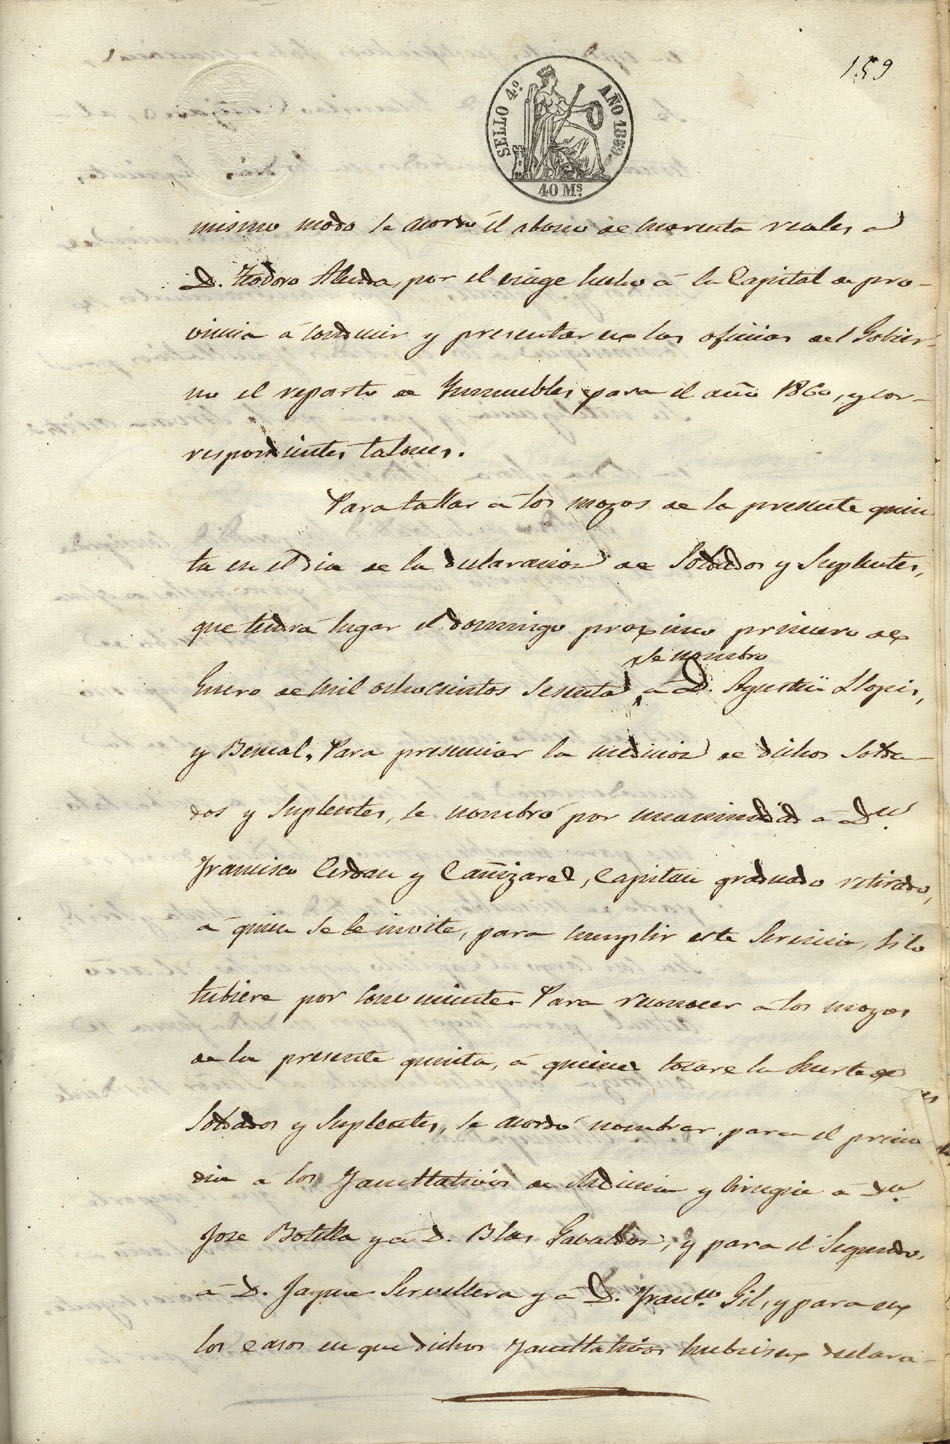 159
SELLO 4.º AÑO 1859
40 Ms.
mismo modo se acordó el abono de cuarenta reales a
D. Teodoro Alenda, por el viage hecho á la Capital de pro-
vincia á conducir y presentar en las oficinas del Gobier-
no el reparto de Ynmuebles para el año 1860, y cor-
respondientes talones.
Para tallar á los mozos de la presente quin-
ta en el dia de la declaracion de Soldados y Suplentes,
que tendrá lugar el domingo proximo primero de
se nombró
Enero de mil ochocientos sesenta, á D. Agustin Llopis,
y Bernal. Para presenciar la medicion de dichos Solda-
dos y Suplentes, se nombró por unanimidad á Dn.
Francisco Cerdan y Cañizares, Capitan graduado retirado,
á quien se le invite, para cumplir este Servicio, si lo
tubiere por conveniente. Para reconocer a los mozos
de la presente quinta, á quienes tocare la Suerte de
Soldados y Suplentes, se acordó nombrar para el primer
dia a los Facultativos de Medicina y Cirugia á Dn.
Jose Botella y á D. Blas Gabaldon, y para el Segundo,
á D. Jayme Servellera y á D. Franco. Gil, y para en
los casos en que dichos Facultativos hubiesen declara-